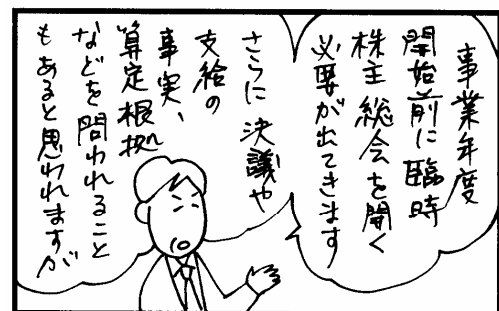 事業年度
開始前に臨時
株主総会を開く
必要が出てきます
さらに決議や
支給の
事実、
算定根拠
などを問われること
もあると思われますが